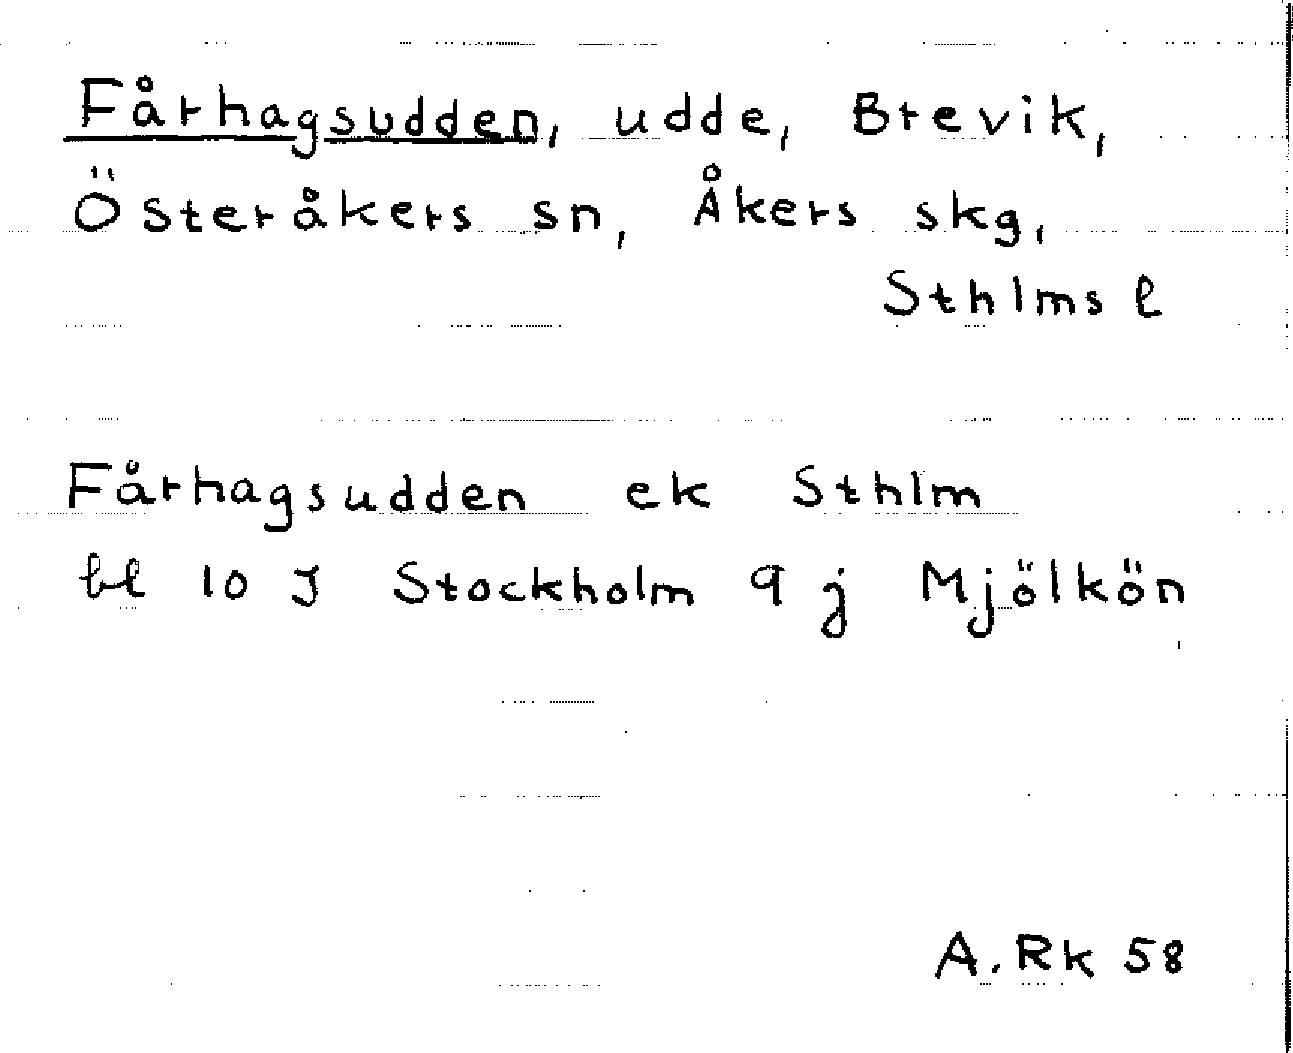 Fårhagsudden, udde, Brevik,
Österåkers sn, Åkers skg,
Sthlms l
Fårhagsudden ek Sthlm
bl 10 J Stockholm 9 j Mjölkön
A. Rk 58